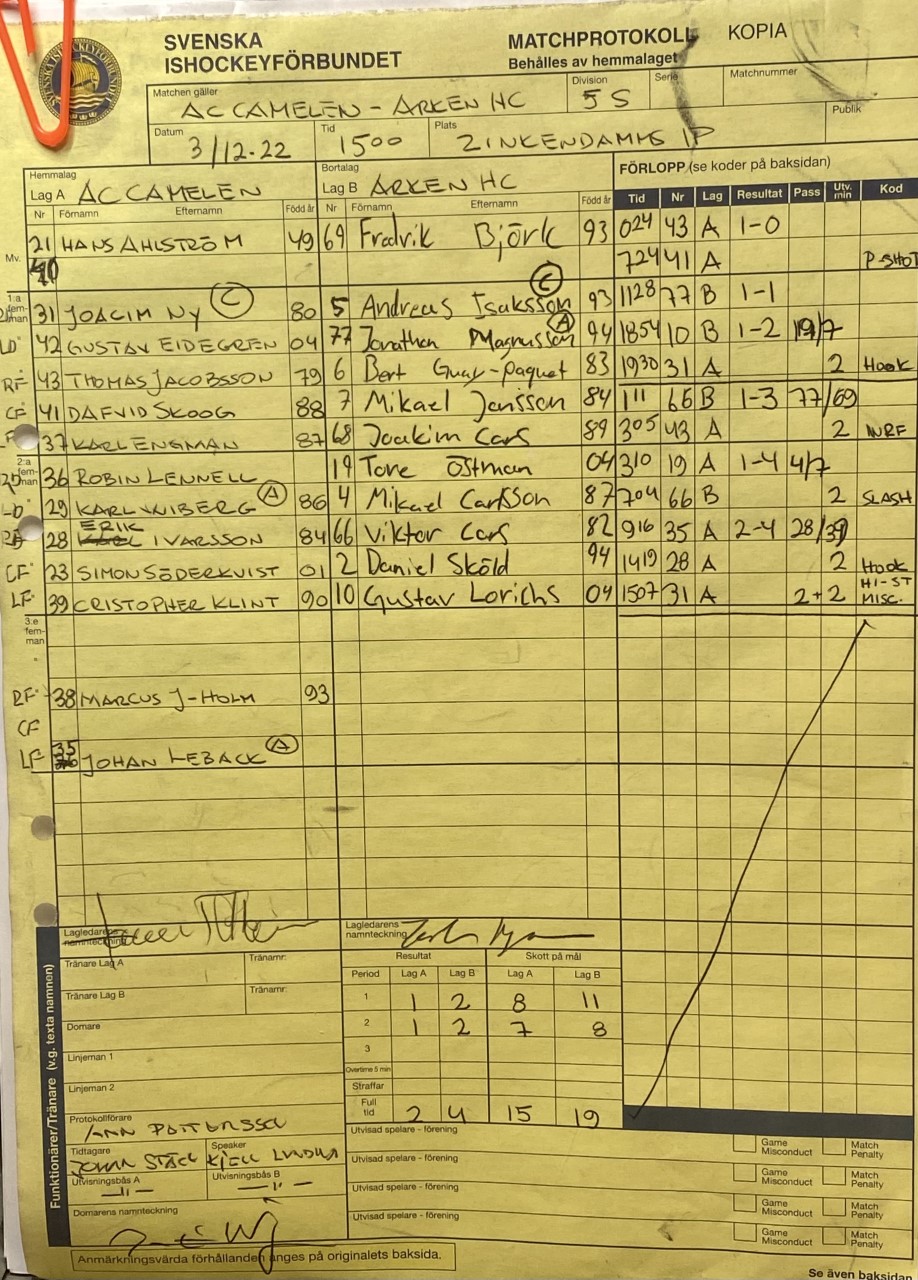 SVENSKA ISHOCKEYFÖRBUNDET
SVENSKA
ISHOCKEYFÖRBUNDET
MATCHPROTOKOLL KOPIA
Behålles av hemmalaget
Matchen gäller Division Serie Matchnummer
AC CAMELEN - ARKEN HC 5 S
Datum Tid Plats Publik
3/12-22 1500 ZINKENDAMMS IP
Hemmalag Bortalag FÖRLOPP (se koder på baksidan)
Lag A AC CAMELEN Lag B ARKEN HC
Nr Förnamn Efternamn Född år Nr Förnamn Efternamn Född år Tid Nr Lag Resultat Pass Utv. min Kod
Mv. 21 HANS AHLSTRÖM 49 69 Fredrik Björk 93 024 43 A 1-0
724 41 A P-SHOT
1:a fem-man 31 JOACIM NY C 80 5 Andreas Isaksson C 93 1128 77 B 1-1
LD 42 GUSTAV EIDEGREN 04 77 Jonathan Magnusson A 94 1854 10 B 1-2 19/7
RF 43 THOMAS JACOBSSON 79 6 Bert Guay-Paquet 83 1930 31 A 2 HOOK
CF 41 DAFVID SKOOG 88 7 Mikael Jansson 84 111 66 B 1-3 77/69
37 KARL ENGMAN 87 68 Joakim Cars 89 305 43 A 2
2:a fem-man 36 ROBIN LENNELL 19 Tore Östman 04 310 19 A 1-4 4/7
LD 29 KARL WIBERG A 86 4 Mikael Carlsson 87 704 66 B 2 SLASH
28 ERIK IVARSSON 84 66 Viktor Cars 82 916 35 A 2-4 28/39
CF 23 SIMON SÖDERKVIST 01 2 Daniel Sköld 94 1419 28 A 2 HOOK
LF 39 CRISTOPHER KLINT 90 10 Gustav Lorichs 04 1507 31 A 2+2 HI-ST MISC.
3:e fem-man
RF 38 MARCUS J-HOLM 93
CF
LF 35 JOHAN LEBACK A
Lagledarens namnteckning Lagledarens namnteckning
Funktionärer/Tränare (v.g. texta namnen)
Tränare Lag A Tränarnr: Resultat Skott på mål
Period Lag A Lag B Lag A Lag B
Tränare Lag B Tränarnr: 1 1 2 8 11
Domare 2 1 2 7 8
Linjeman 1 3
Overtime 5 min
Linjeman 2 Straffar
Full tid 2 4 15 19
Protokollförare
ANN
Utvisad spelare - förening Game Misconduct Match Penalty
Tidtagare Speaker
JOHAN KJELL
Utvisad spelare - förening Game Misconduct Match Penalty
Utvisningsbås A Utvisningsbås B
—11— —11—
Utvisad spelare - förening Game Misconduct Match Penalty
Domarens namnteckning
Utvisad spelare - förening Game Misconduct Match Penalty
Anmärkningsvärda förhållanden anges på originalets baksida.
Se även baksidan